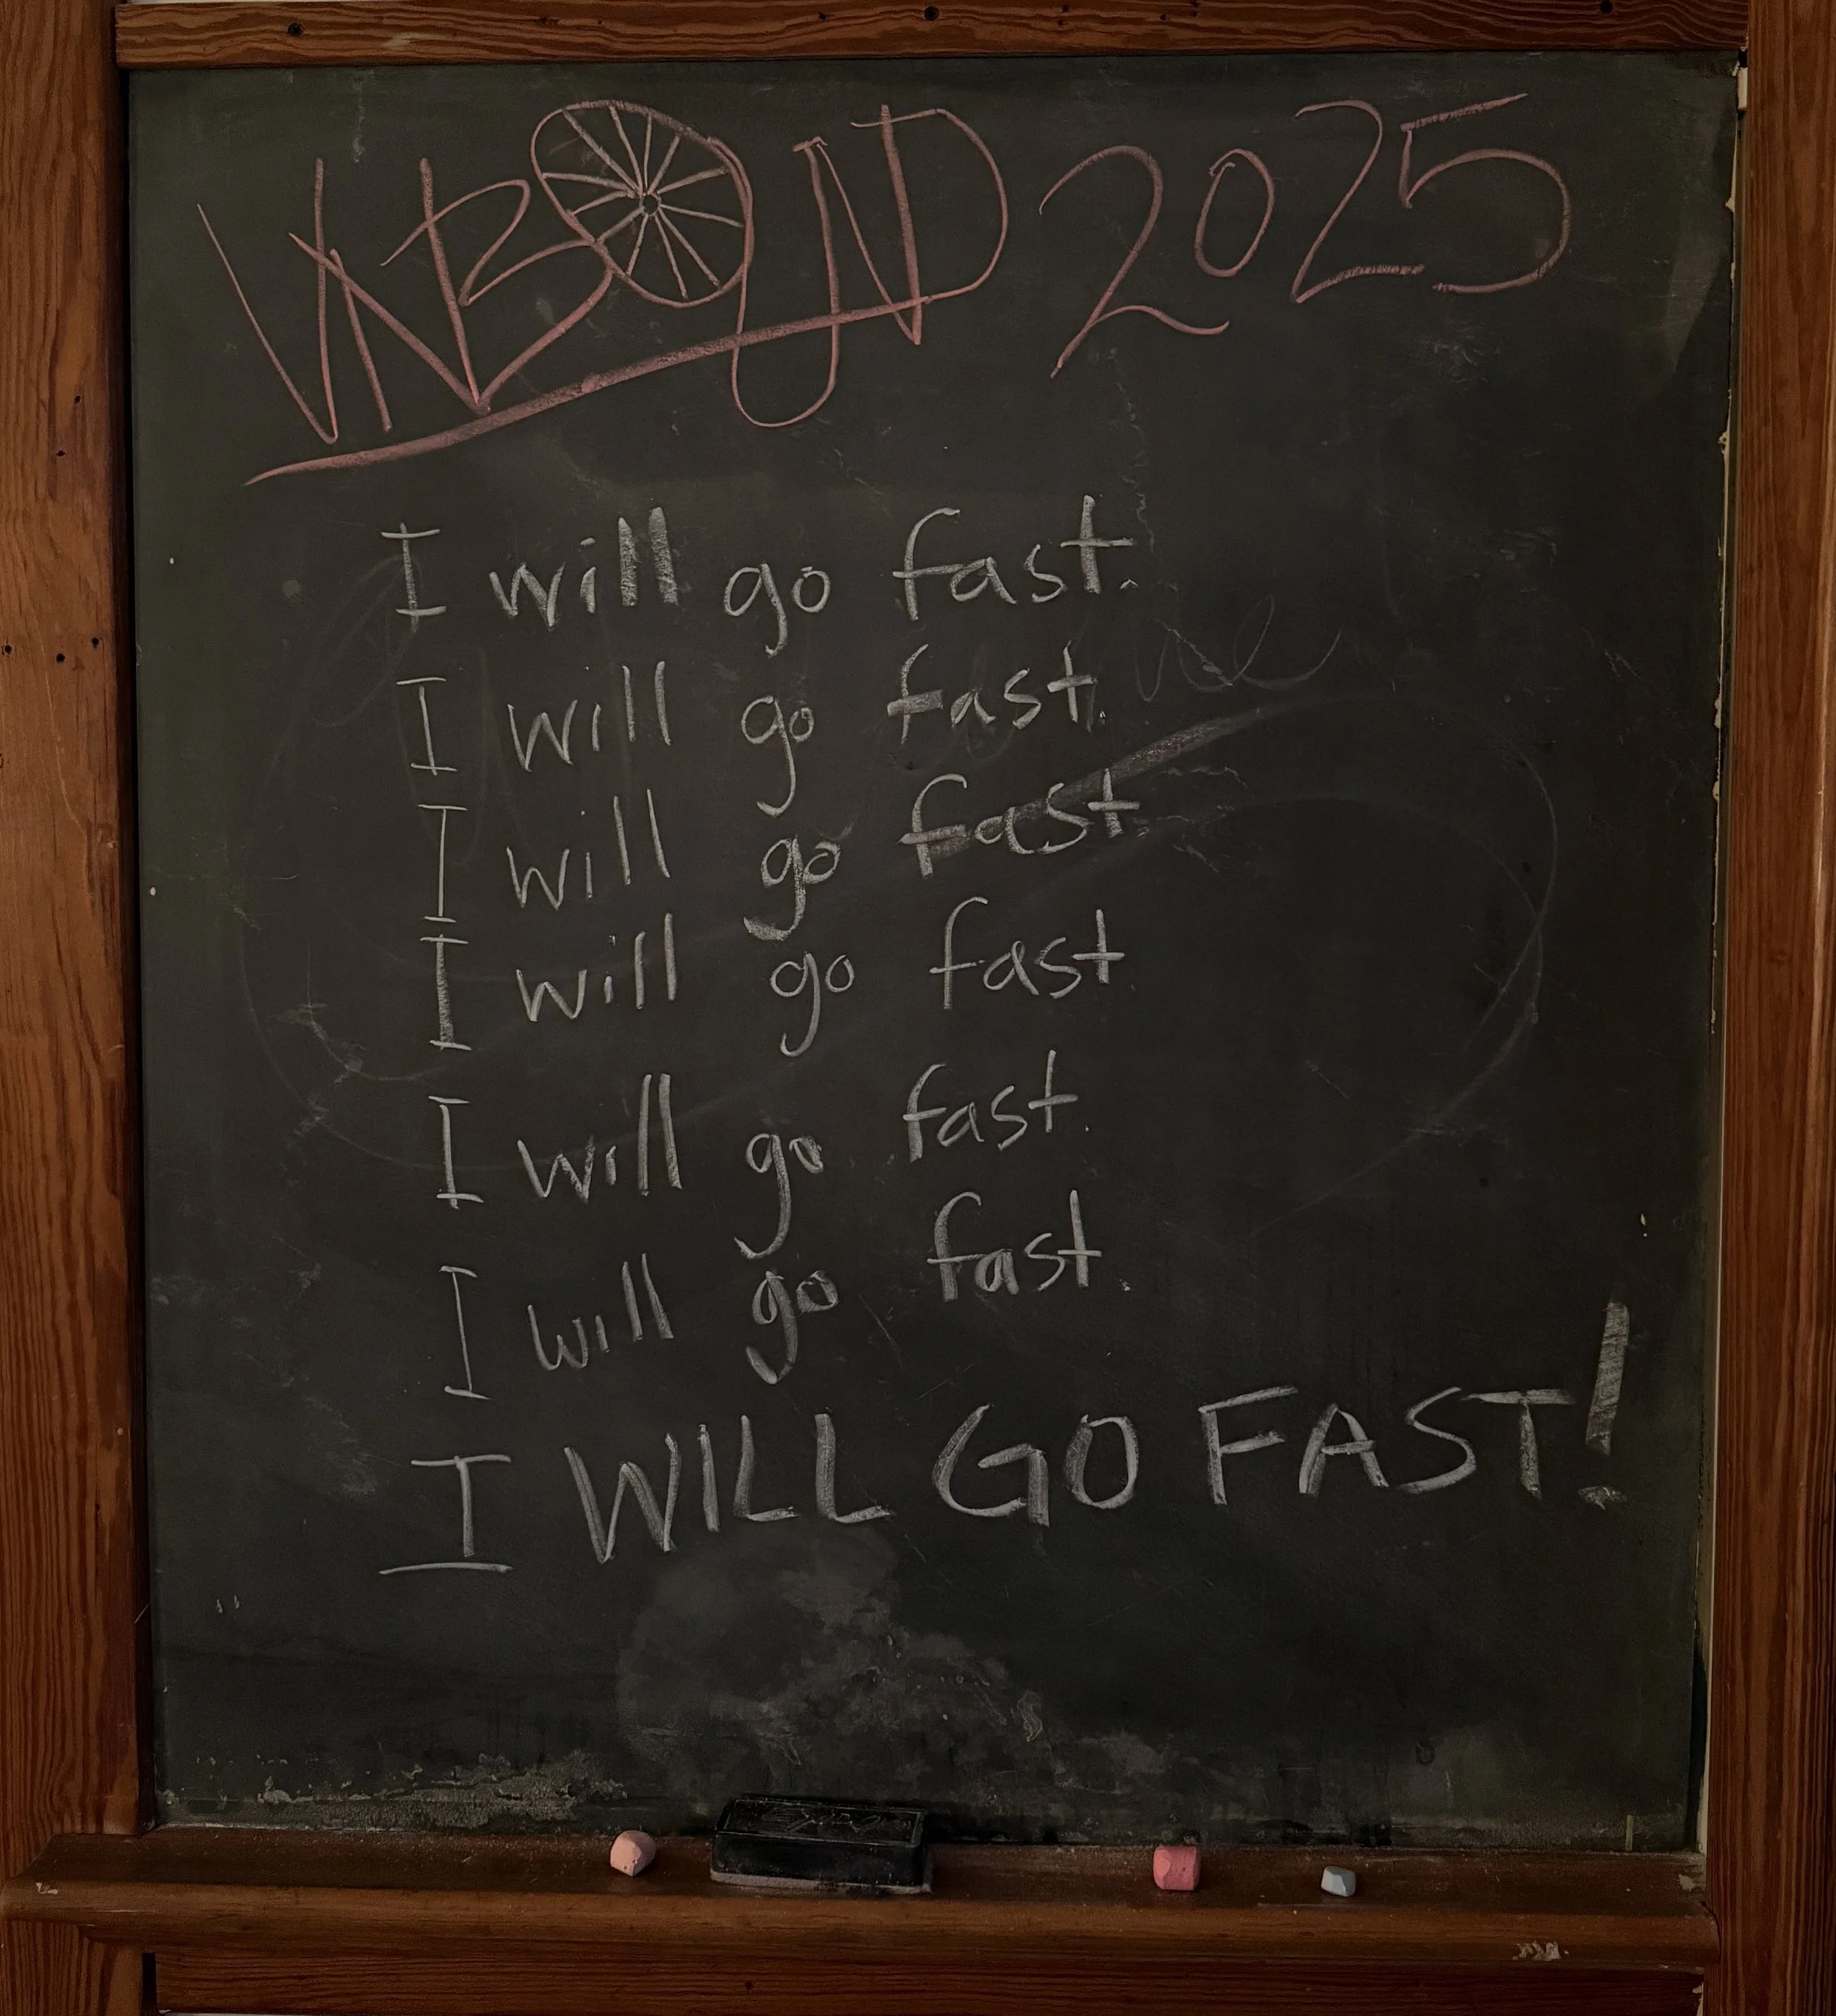 UNBOUND 2025
I will go fast.
I will go fast.
I will go fast.
I will go fast
I will go fast.
I will go fast.
I WILL GO FAST!